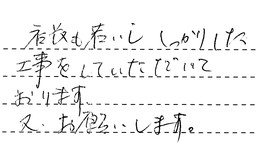 社長も若いし しっかりした
工事をしていただいて
おります。
又、お願いします。